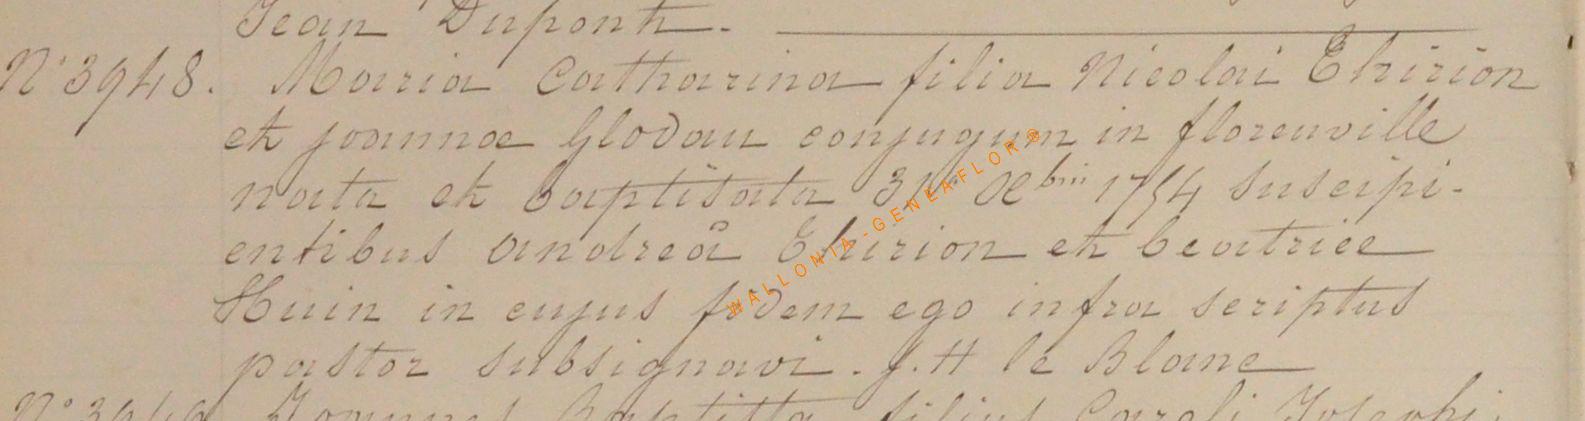 Jean Dupont.
N° 3948. Maria Catharina filia Nicolai Thirion
et joannæ Glodau conjugum in florenville
nata et baptisata 31 Xbris 1754 suscipi-
entibus andreâ Thirion et beatrice
Huin in cujus fidem ego infra scriptus
pastor subsignavi. J. H le Blanc
N° 3949 Joannes Baptista filius Caroli Josephi
WALLONIA-GENEAFLOR®